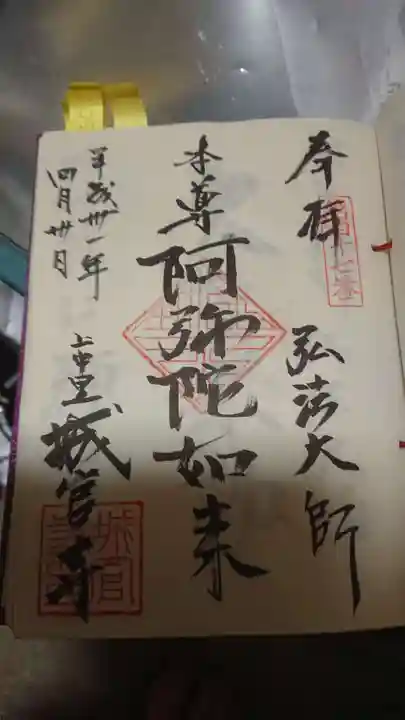 奉拝
弘法大師
本尊
阿弥陀如来
平成卅一年
四月卅日
城官寺